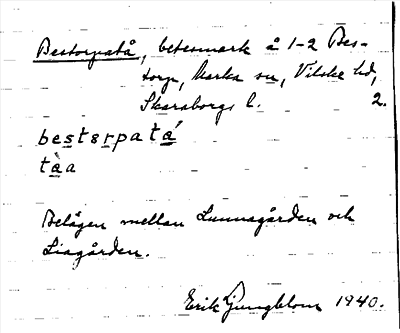 Bestorpatå, betesmark å 1-2 Bes-
torp, Karka sn, Vilske hd,
Skaraborgs l. 2.
bestsrpatá
tàa
Belägen mellan Lunnagården och
Liagården.
Erik Ljungblom 1940.